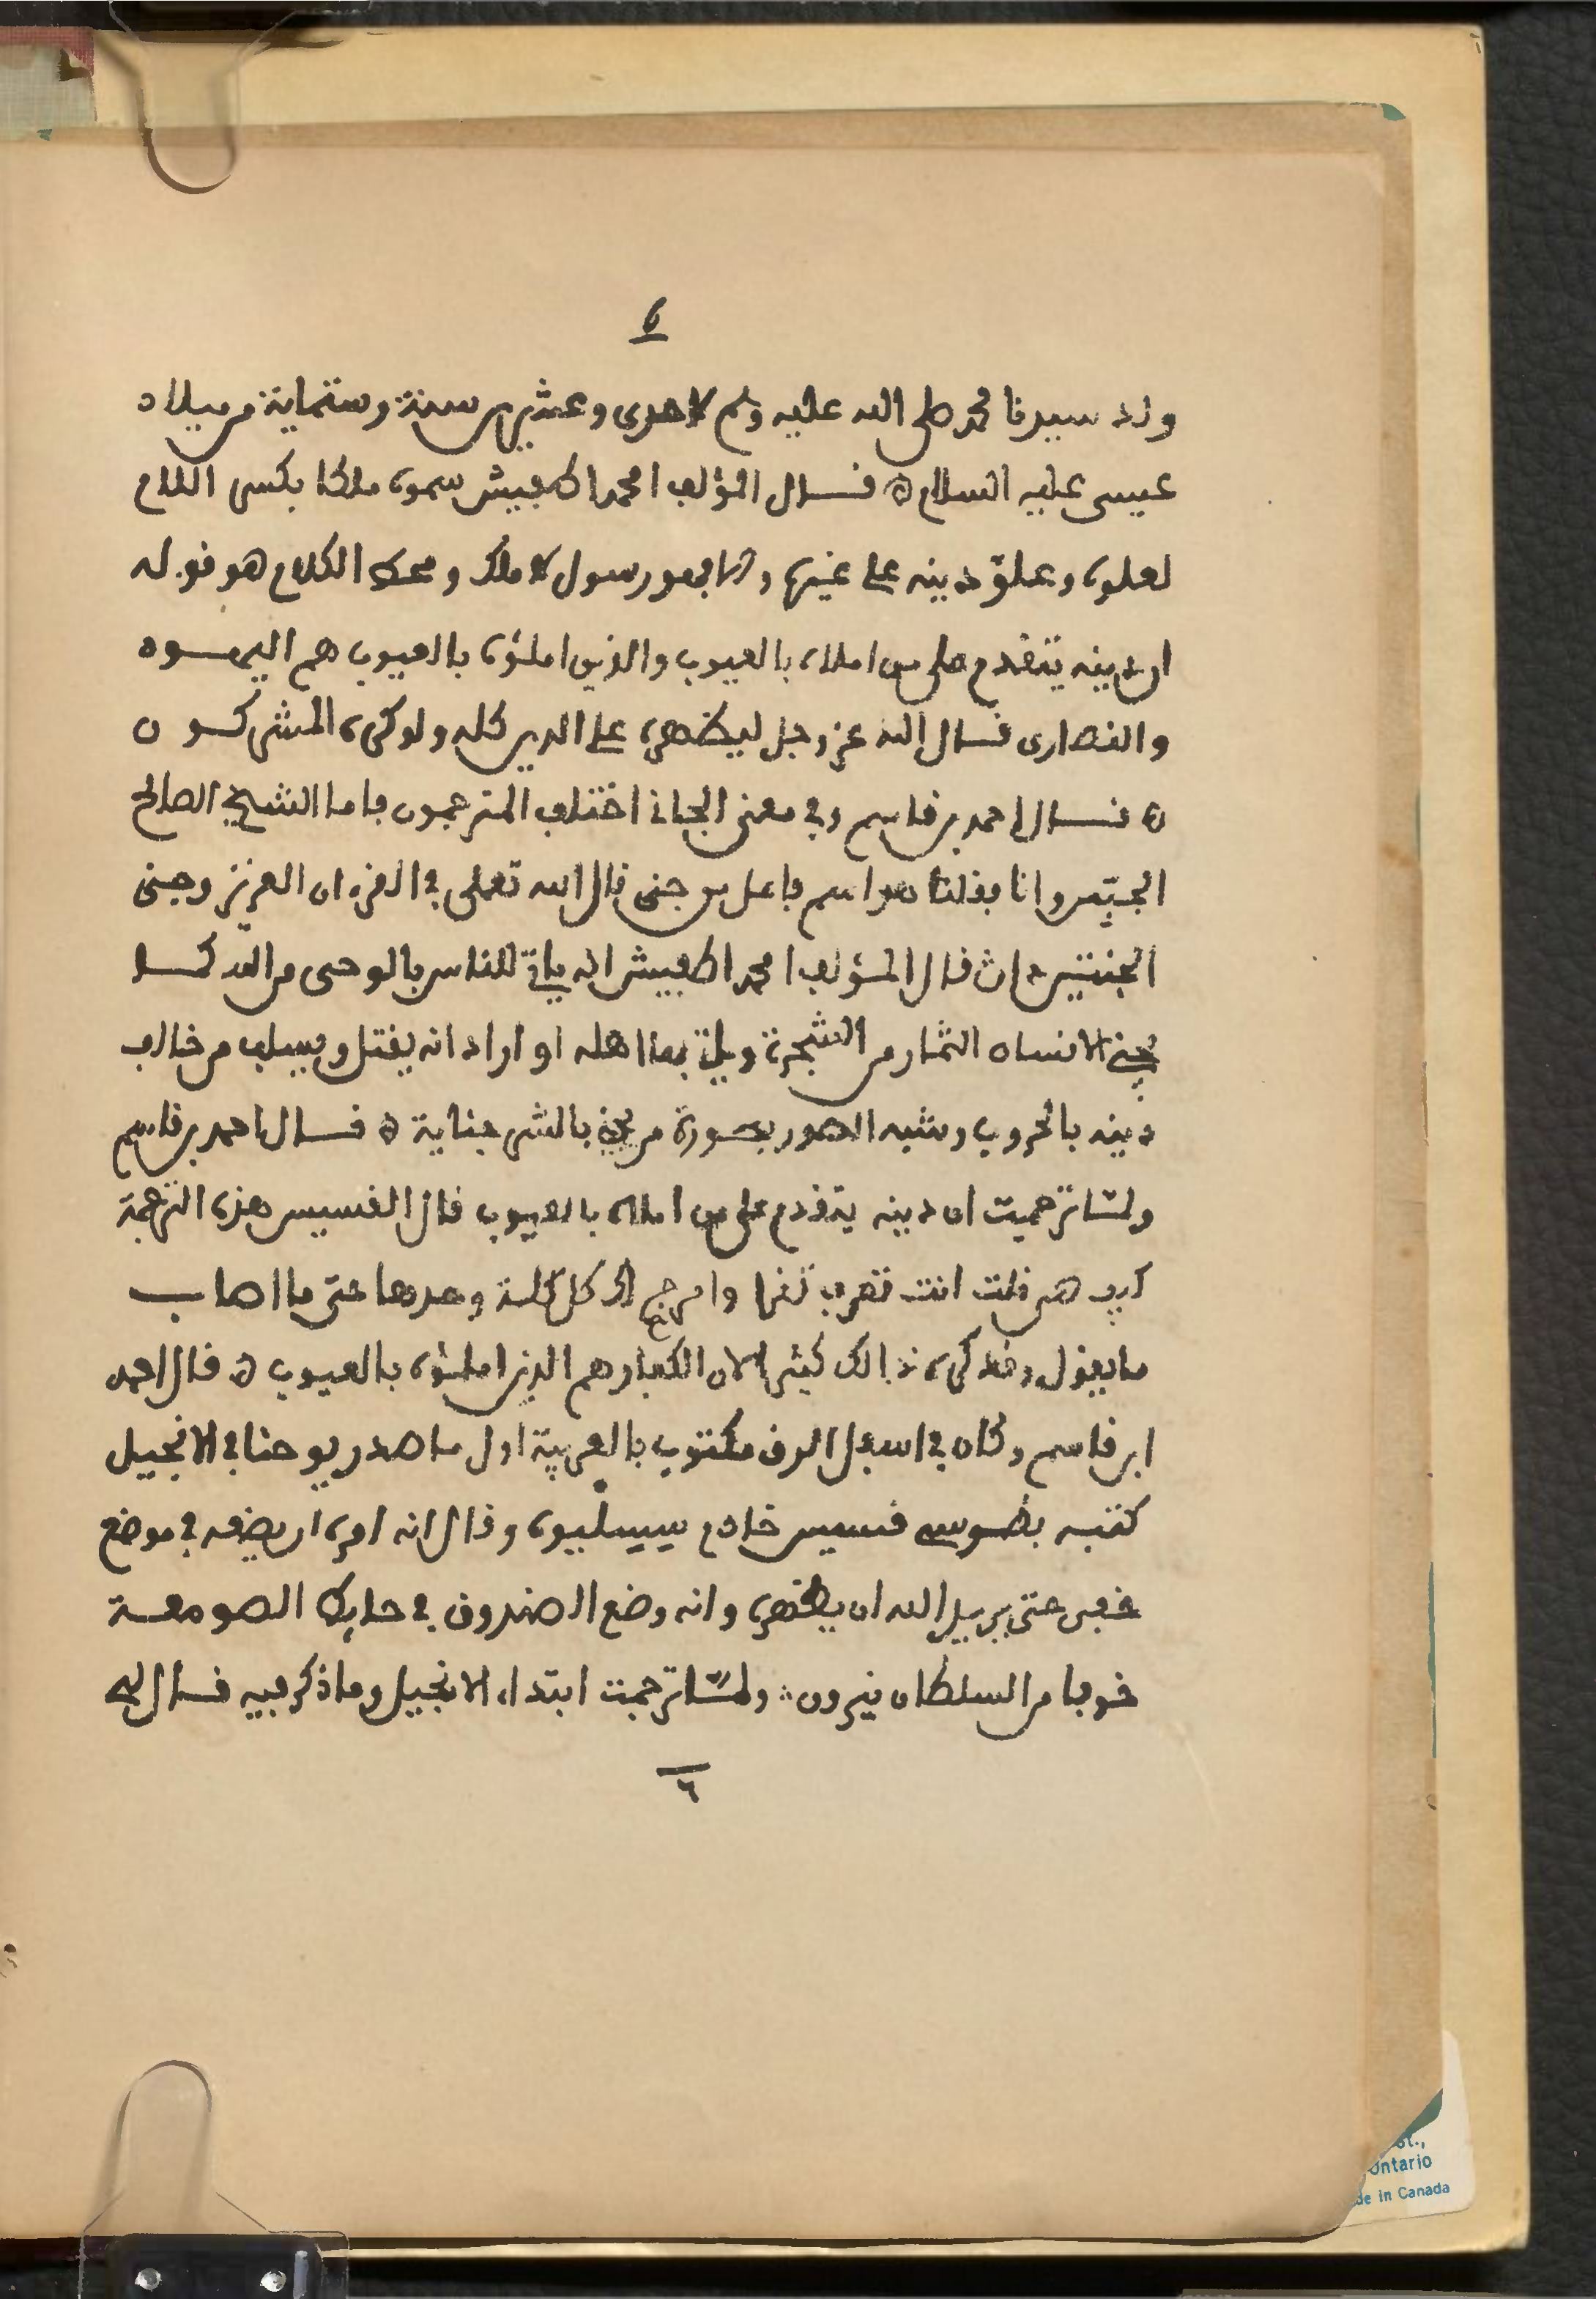 6
ولد سيدنا محمد صلى الله عليه وسلم لاحدى وعشرين سنة وستماية من ميلاد
عيسى عليه السلام ه قال المؤلف امحمد اكحبيش سموه ملكا بكسر اللام
لعلوه وعلو دينه على غيره والا فهو رسول لا ملك ومحط الكلام هو قوله
ان دينه يتقدم على من املاه بالعيوب والذين املئوه بالعيوب هم اليهود
والنصارى قال الله عز وجل ليظهره على الدين كله ولو كره المشركون
ه قال احمد بن قاسم وفي معنى الجاني اختلف المترجمون فاما الشيخ الصالح
الجبّس وانا فقلنا هو اسم فاعل من جنى قال الله تعلى في القرءان العزيز وجنى
الجنتين دان قال المؤلف امحمد اكحبيش انه ياتي للناس بالوحى من الله كما
يجني الانسان الثمار من الشجرة وياتي بها اهله او اراد انه يقتل ويسلب من خالف
دينه بالحروب وشبه الصور بصورة من يجني بالشر جناية ه قال احمد بن قاسم
ولما ترجمت ان دينه يتقدم على من املاه بالعيوب قال القسيس هذه الترجمة
كيف هي قلت انت تعرف تقرا وامرجح لك كل كلمة وحدها حتى ما اصاب
ما يقول وقد كره ذالك كثيرا لان الكفار هم الذين املئوه بالعيوب ه قال احمد
ابن قاسم وكان في اسفل الرق مكتوب بالعربية اول ما صدر يوحنا في الانجيل
كتبه بطوسي قسيس خادم سيسليوه وقال انه امره ان يضعه في موضع
خفي حتى يريد الله ان يظهره وانه وضع الصندوق في حايط الصومعة
خوفا من السلطان نيرون ؞ ولما ترجمت ابتداء الانجيل وما ذكر فيه قال لي
٦
St.,
Ontario
de in Canada